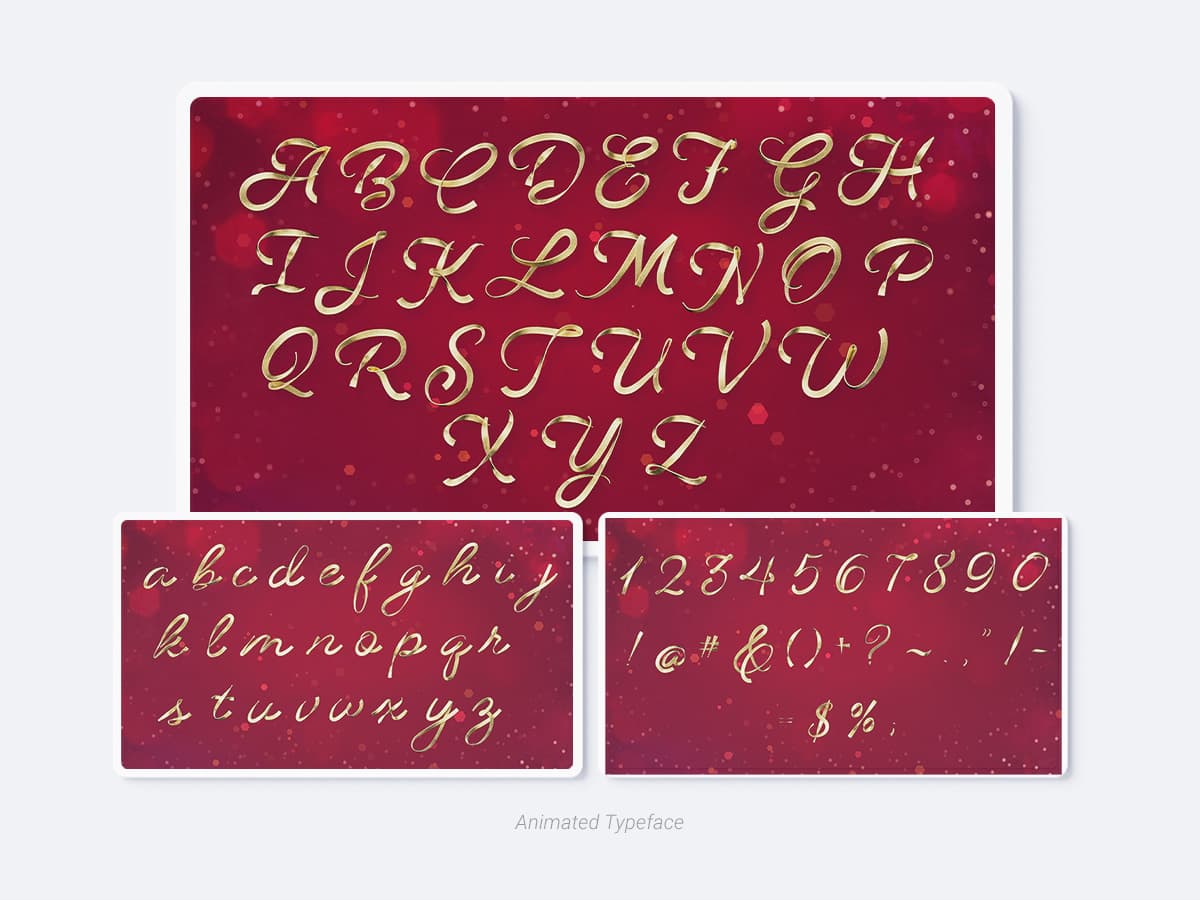 A B C D E F G H
I J K L M N O P
Q R S T U V W
X Y Z
a b c d e f g h i j
k l m n o p q r
s t u v w x y z
1 2 3 4 5 6 7 8 9 0
! @ # & ( ) + ? ~ . , " / -
= $ % ;
Animated Typeface